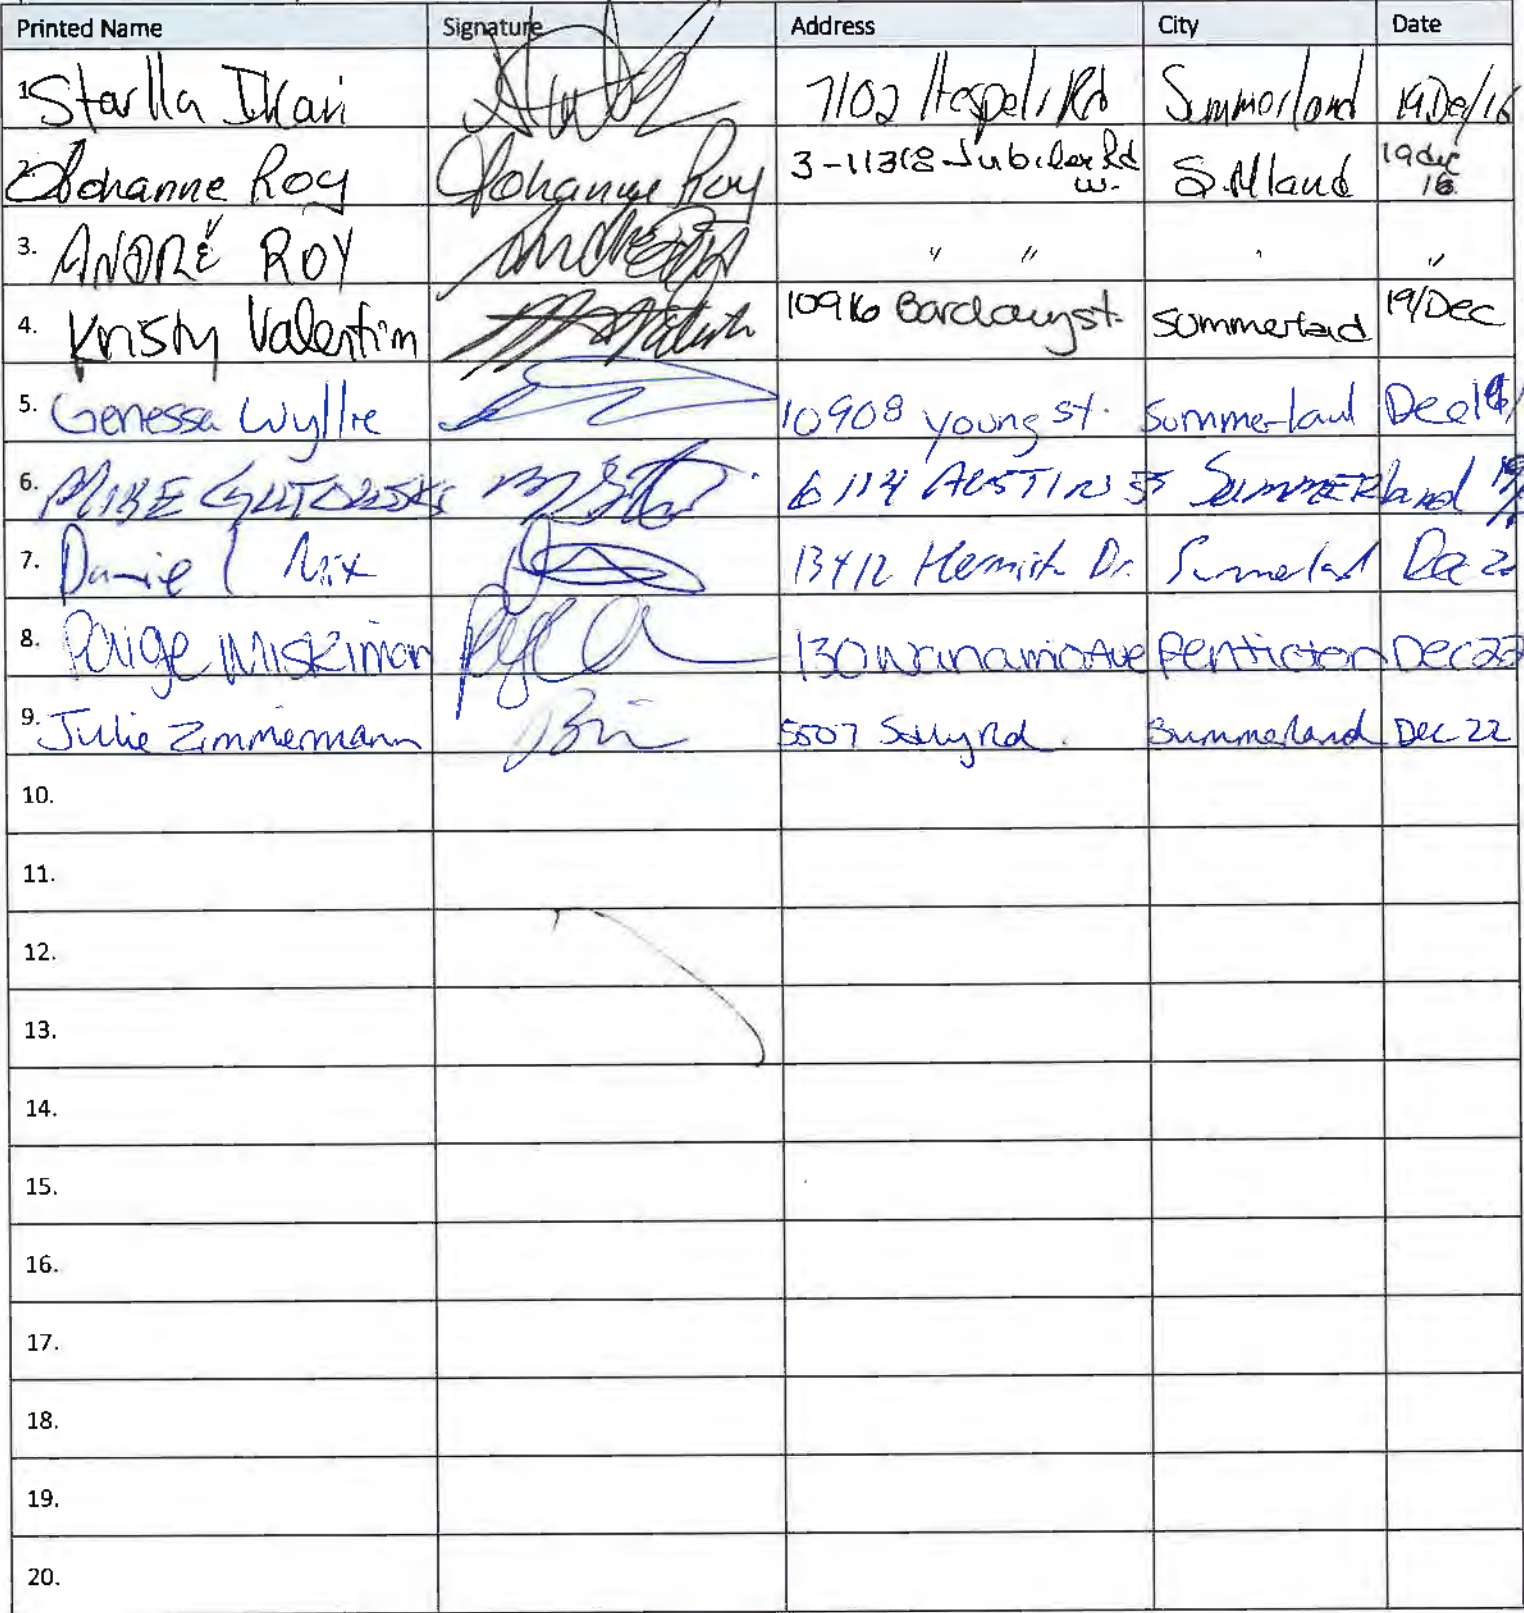 Printed Name Signature Address City Date
1. Starlla Ikari 7102 Hespeler Rd Summerland 19 Dec/16
2. Johanne Roy Johanne Roy 3-11318 Jubilee Rd W. S.Mland 19 dec 16
3. ANDRÉ ROY " " " "
4. Kristy Valentim 10916 Barclay st. Summerland 19/Dec
5. Genessa Wyllie 10908 young st. Summerland Dec 19/
6. MIKE GUTOWSKI 6114 AUSTIN ST SUMMERland
7. Daniel Nix 13412 Dr. Summerland Dec 22
8. Paige Miskiman 130 Nanaimo Ave Penticton Dec 22
9. Julie Zimmermann 5507 Rd. Summerland Dec 22
10.
11.
12.
13.
14.
15.
16.
17.
18.
19.
20.